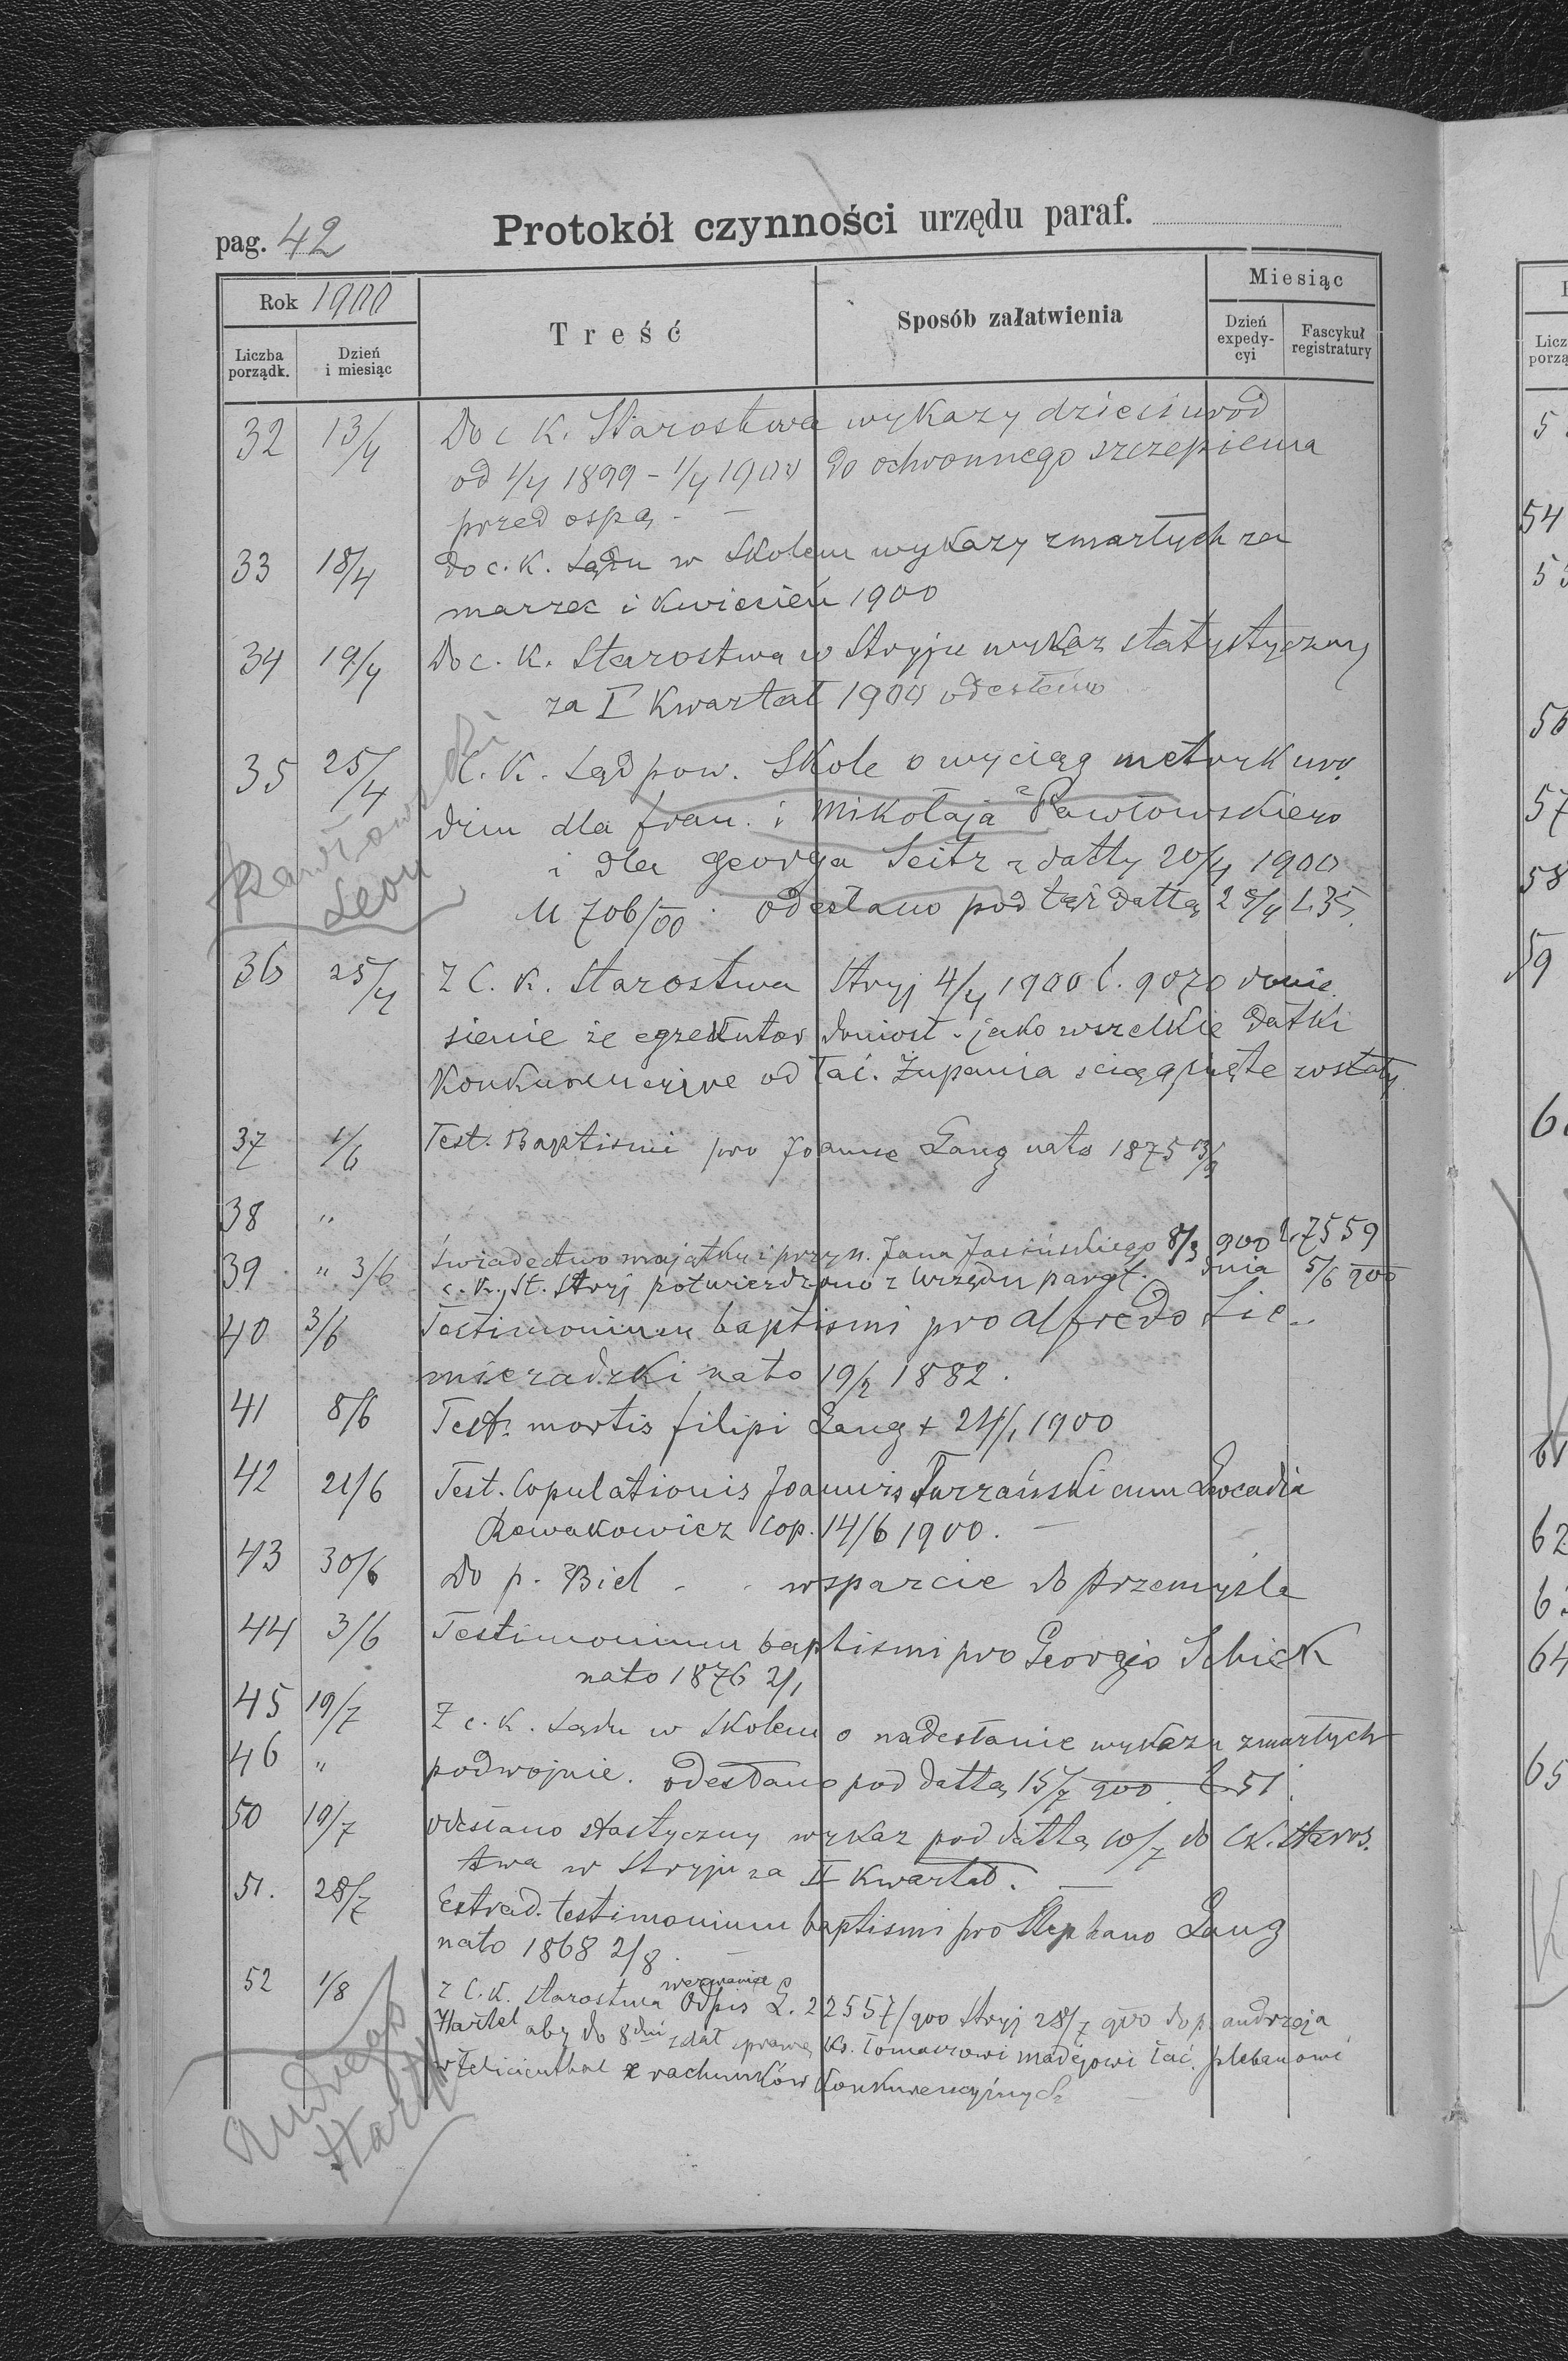 pag. 42
Protokół czynności urzędu paraf.
Rok 1900
Treść
Sposób załatwienia
Miesiąc
Liczba porządk.
Dzień i miesiąc
Dzień expedycyi
Fascykuł registratury
32 13/4 Do c k. Starostwa wykazy dzieci urod
od 1/4 1899 - 1/4 1900 do ochronnego szczepienia
przed ospą. —
33 18/4 do c. k. Sądu w Skolem wykazy zmarłych za
marzec i kwiecień 1900
34 19/4 Do c. k. Starostwa w Stryju wykaz statystyczny
za I Kwartał 1900 odesłano
35 25/4 C. K. Sąd pow. Skole o wyciąg metryk uro
dzin dla fran. i Mikołaja Pawłowskiego
i dla Georga Seitz z datty 20/4 1900
Pawłowski Leon
U 706/00 . odesłano pod tąż dattą 25/4 L 35.
36 25/4 Z C. K. Starostwa Stryj 4/4 1900 l. 9070 donie
sienie że egzekutor doniósł - jako wszelkie datki
Konkurencyjne od łać. Żupania ściągnięte zostały
37 1/6 Test. Baptismi pro Joanne Lang nato 1875 13/9
38 "
39 " 3/6 Świadectwo majątku i przyn. Jana Jasińskiego 8/3 900 L. 7559
c. k. St. Stryj potwierdzono z Urzędu paraf. dnia 5/6 900
40 3/6 Testimonium baptismi pro Alfredo Sie..
mieradzki nato 19/2 1882.
41 8/6 Test. mortis filipi Lang + 24/1 1900
42 21/6 Test. Copulationis Joannis Turzański cum Leocadia
Rewakowicz Cop. 14/6 1900. —
43 30/6 Do p. Biel - - wsparcie do Przemyśla
44 3/6 Testimonium baptismi pro Georgio Schick
nato 1876 2/1
45 19/7 Z c. k. Sądu w Skolem o nadesłanie wykazu zmarłych
46 " podwojnie. odesłano pod dattą 15/7 900. L 51.
50 10/7 odesłano stastyczny wykaz pod dattą 10/7 do C K. Staros.
twa w Stryju za II Kwartał. —
51. 28/7 Extrad. testimonium baptismi pro Stephano Lang
nato 1868 2/8. —
wezwanie
52 1/8 Z C. K. Starostwa Odpis L. 22557/900 Stryj 28/7 900 do p. andrzeja
Hartel aby do 8 dni zdał sprawę Ks. Tomaszowi Madejowi łać. plebanowi
w Felicienthal z rachunków Konkurencyjnych
Andreas
Hartel
5
54
5
56
57
58
59
6
61
62
6
64
65